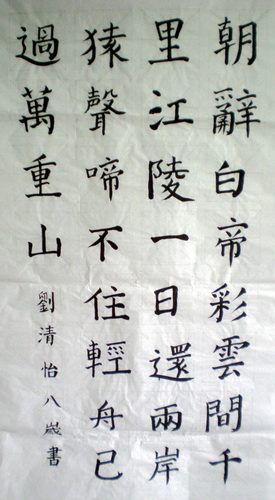 朝辭白帝彩雲間千
里江陵一日還兩岸
猿聲啼不住輕舟已
過萬重山
劉清怡八歲書